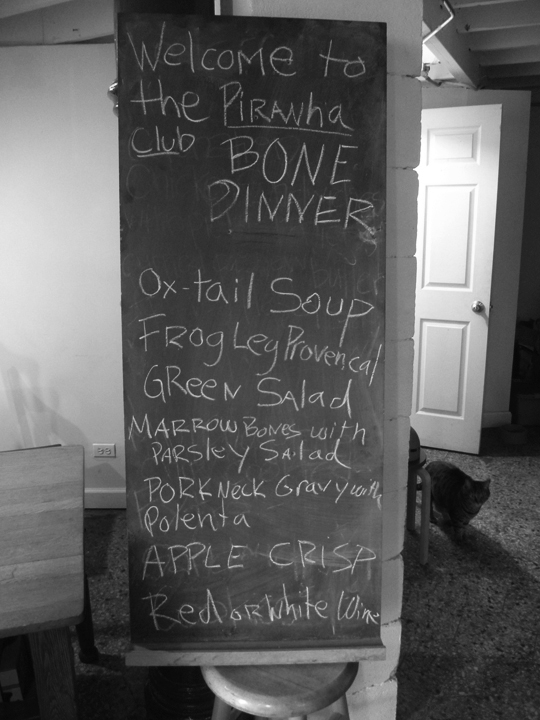 Welcome to
the Piranha
Club BONE
DINNER
Ox-tail Soup
Frog Leg Provencal
Green Salad
Marrow Bones with
Parsley Salad
Pork Neck Gravy with
Polenta
APPLE CRISP
Red or White Wine